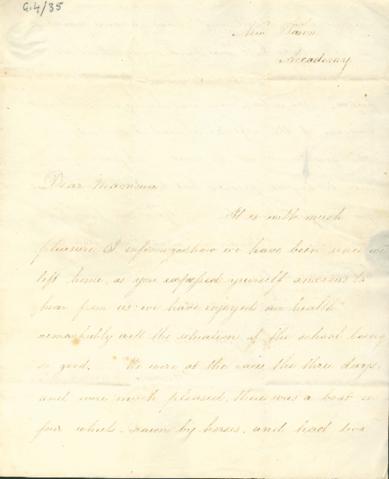 G.4/35
New Town
Accademy
Dear Mamma
It is with much
pleasure I inform you how we have been since we
left home, as you expressed yourself anxious to
hear from us we have enjoyed our health
remarkably well the situation of the school being
so good. We were at the races the three days,
and were much pleased, there was a boat on
four wheels drawn by horses, and had two